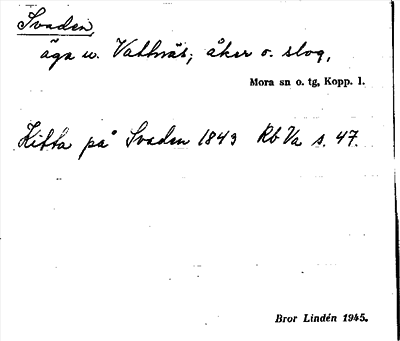 Svaden,
äga u. Vattnäs; åker o. slog,
Mora sn o. tg, Kopp. l.
Kitta på Svaden 1843 Rb Va s. 47.
Bror Lindén 1945.